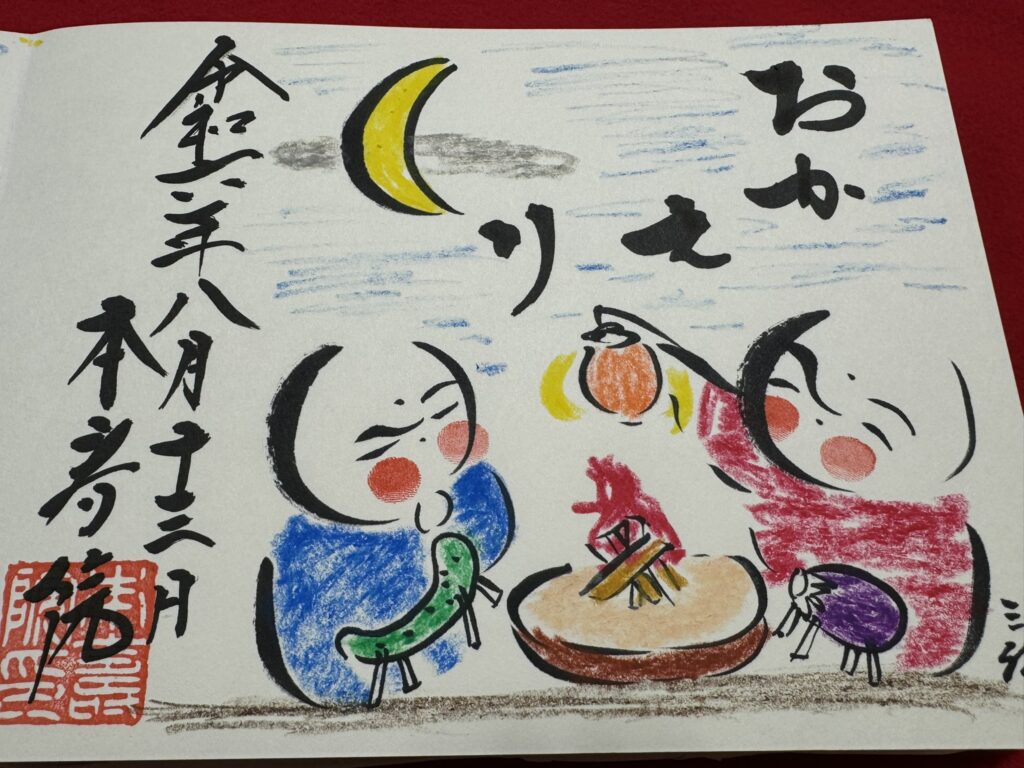 おか
えり
令和六年八月十三日
本寿院